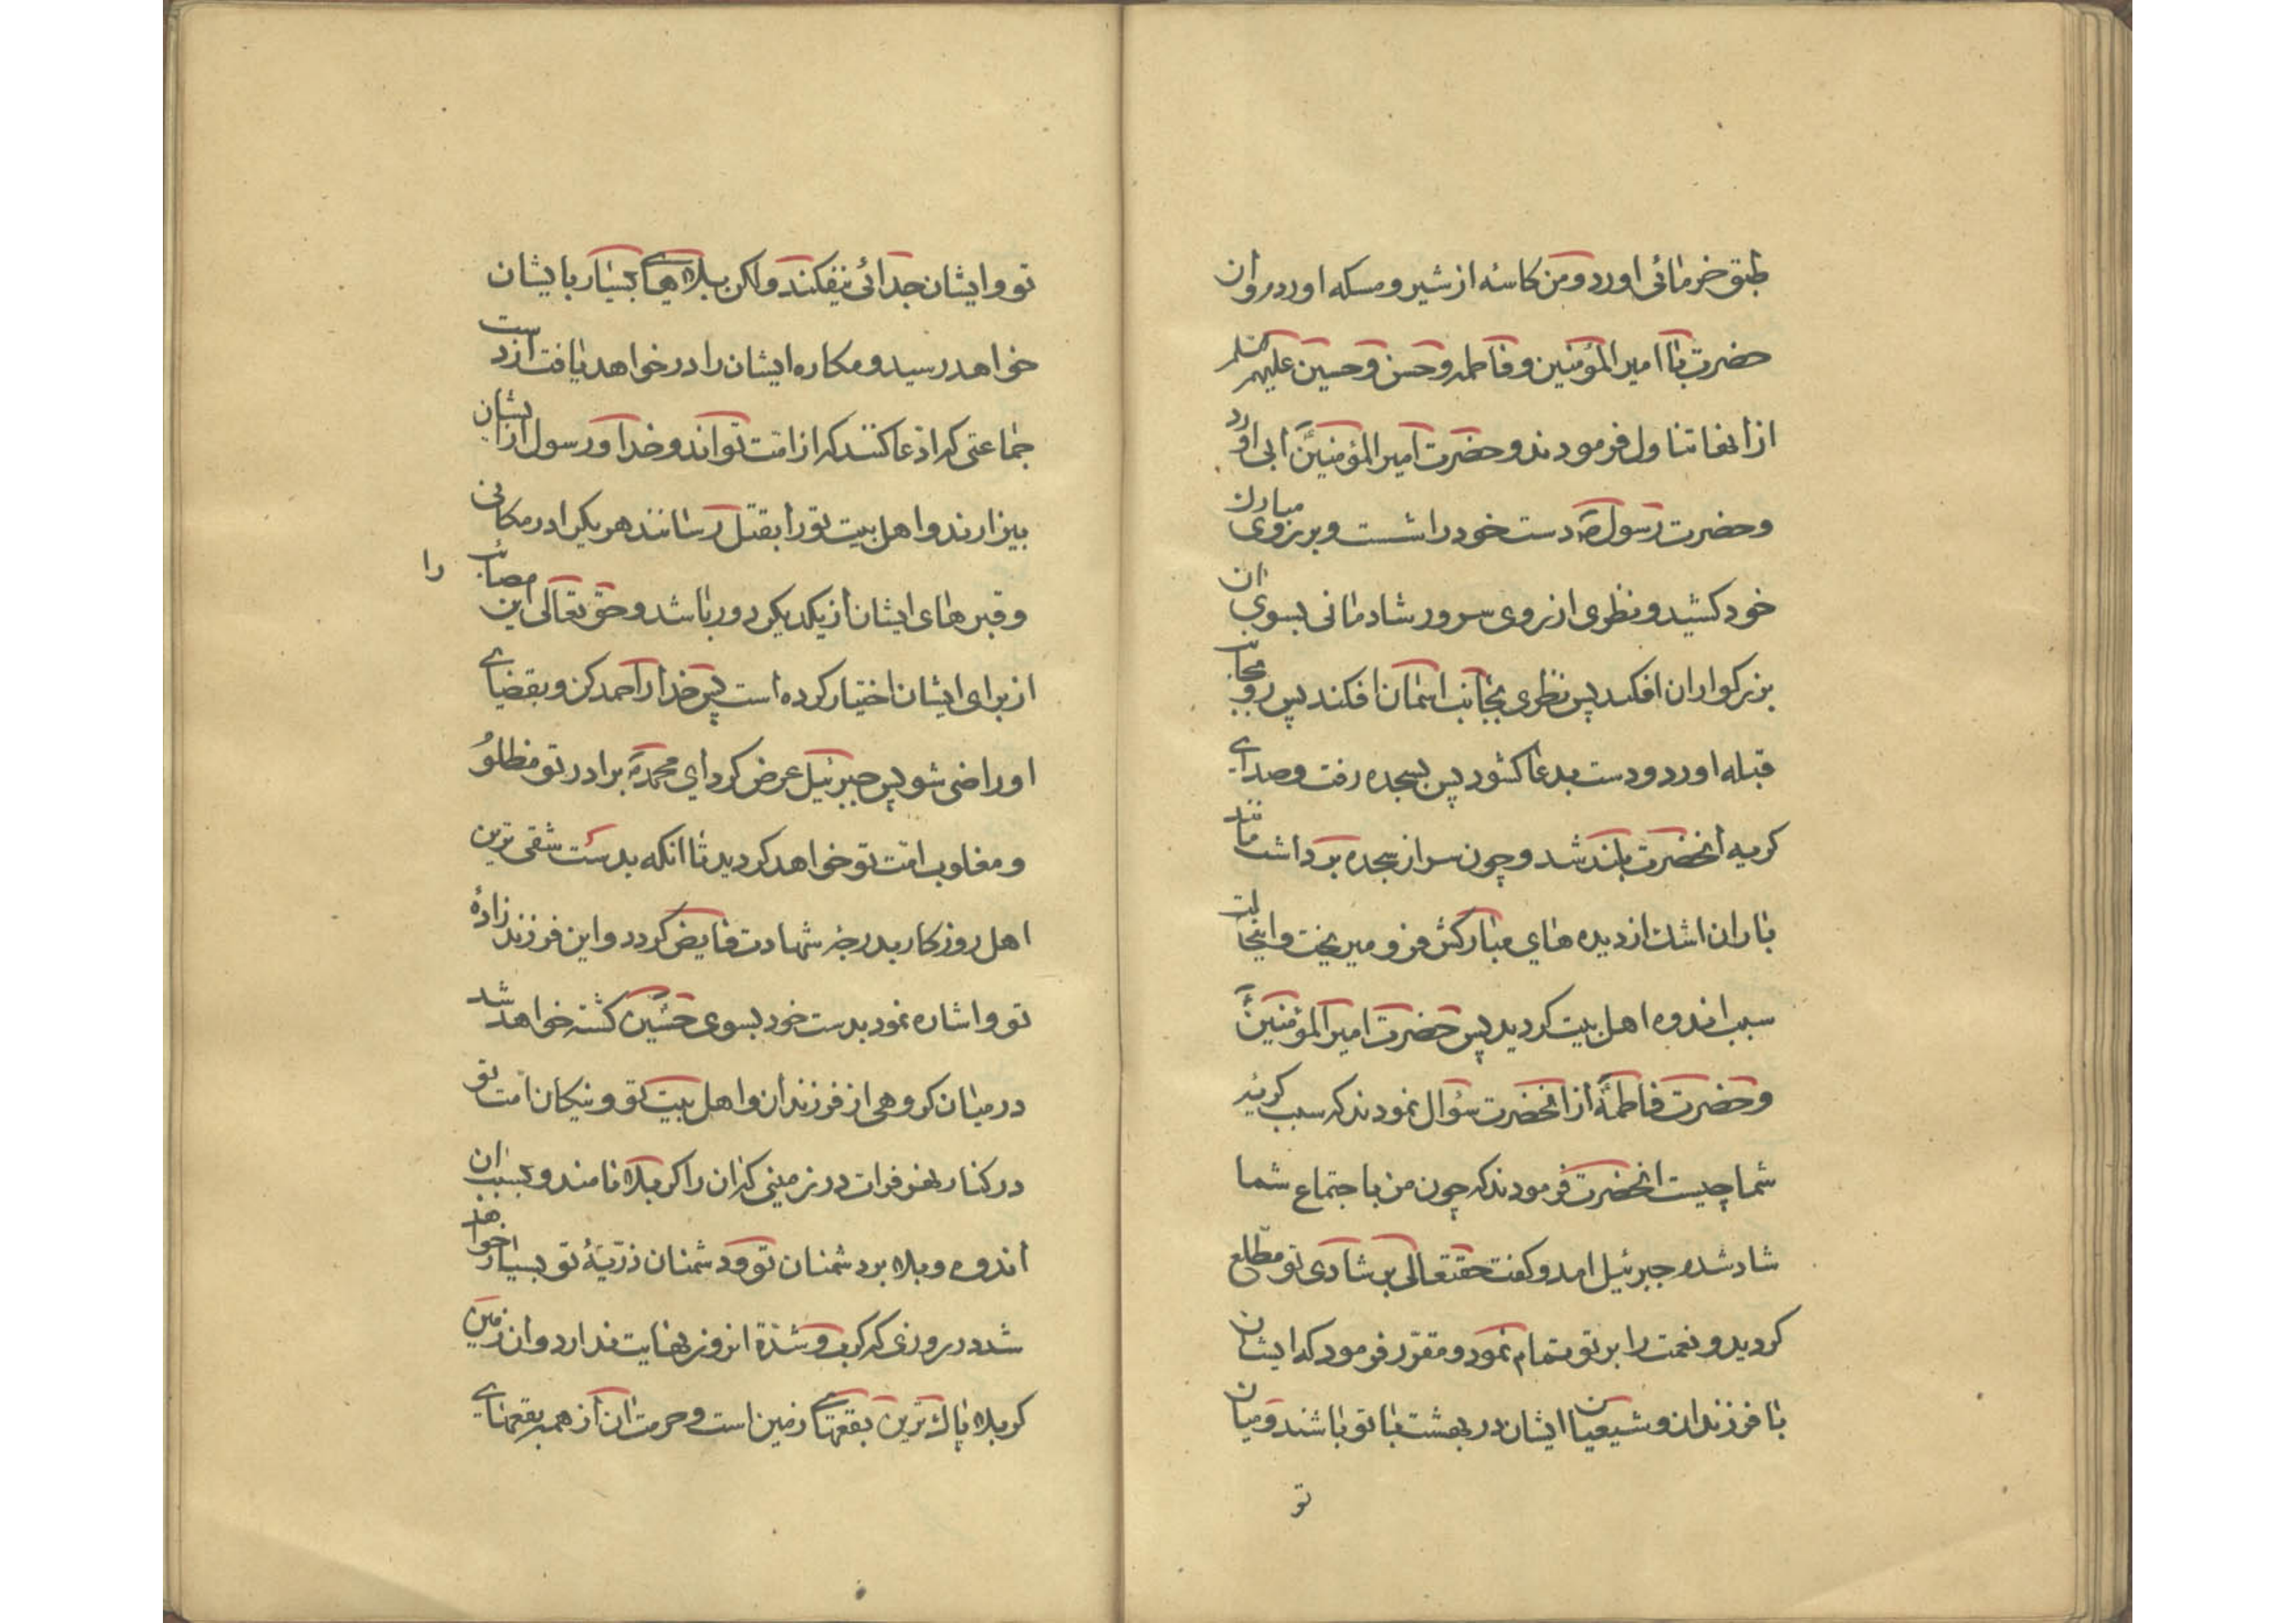 طبق خرمائی اورد و من کاسهٔ از شیر و مسکه اوردم و ان
حضرت با امیر المؤمنین و فاطمه و حسن و حسین علیهم السلم
از انها تناول فرمودند و حضرت امیر المؤمنینؑ ابی اورد
و حضرت رسولؐ دست خود را شست و بر روی مبارک
خود کشید و نظری از روی سرور شادمانی بسوی ان
بزرکواران افکند پس نظری بجانب اسمان افکند پس رو بجانب
قبله اورد و دست بدعا کشود پس بسجده رفت و صدای
کریه انحضرت بلند شد و چون سر از سجده برداشت مانند
باران اشک از دیده های مبارکش فرو میریخت و اینحالت
سبب اندوه اهل بیت کردید پس حضرت امیر المؤمنینؑ
و حضرت فاطمهؑ از انحضرت سؤال نمودند که سبب کریه
شما چیست انحضرت فرمودند که چون من باجتماع شما
شاد شدم جبرئیل امد و کفت حقتعالی بر شادی تو مطّلع
کردید و نعمت را بر تو تمام نمود و مقرّر فرمود که ایشان
با فرزندان و شیعیان ایشان در بهشت با تو باشند و میان
تو
تو و ایشان جدائی نیفکند ولکن بلاهای بسیار بایشان
خواهد رسید و مکاره ایشان را در خواهد یافت از دست
جماعتی که ادّعا کنند که از امّت تواند و خدا و رسول از ایشان
بیزارند و اهل بیت تو را بقتل رسانند هریک را در مکانی
و قبرهای ایشان از یکدیکر دور باشد و حق تعالی این مصائب را
از برای ایشان اختیار کرده است پس خدا را حمد کن و بقضای
او راضی شو پس جبرئیل عرض کرد ای محمدؐ برادر تو مظلوم
و مغلوب امّت تو خواهد کردید تا انکه بدست شقی ترین
اهل روزکار بدرجهٔ شهادت فایض کردد و این فرزند زادهٔ
تو و اشاره نمود بدست خود بسوی حسینؑ کشته خواهد شد
در میان کروهی از فرزندان و اهل بیت تو و نیکان امّت تو
در کنار نهر فرات در زمینی که ان را کربلا نامند و بسبب ان
اندوه و بلا بر دشمنان تو و دشمنان ذرّیّهٔ تو بسیار خواهد
شد در روزی که کرب و شدّة انروز نهایت ندارد و ان زمین
کربلا پاک ترین بقعهای زمین است و حرمت ان از همه بقعهای